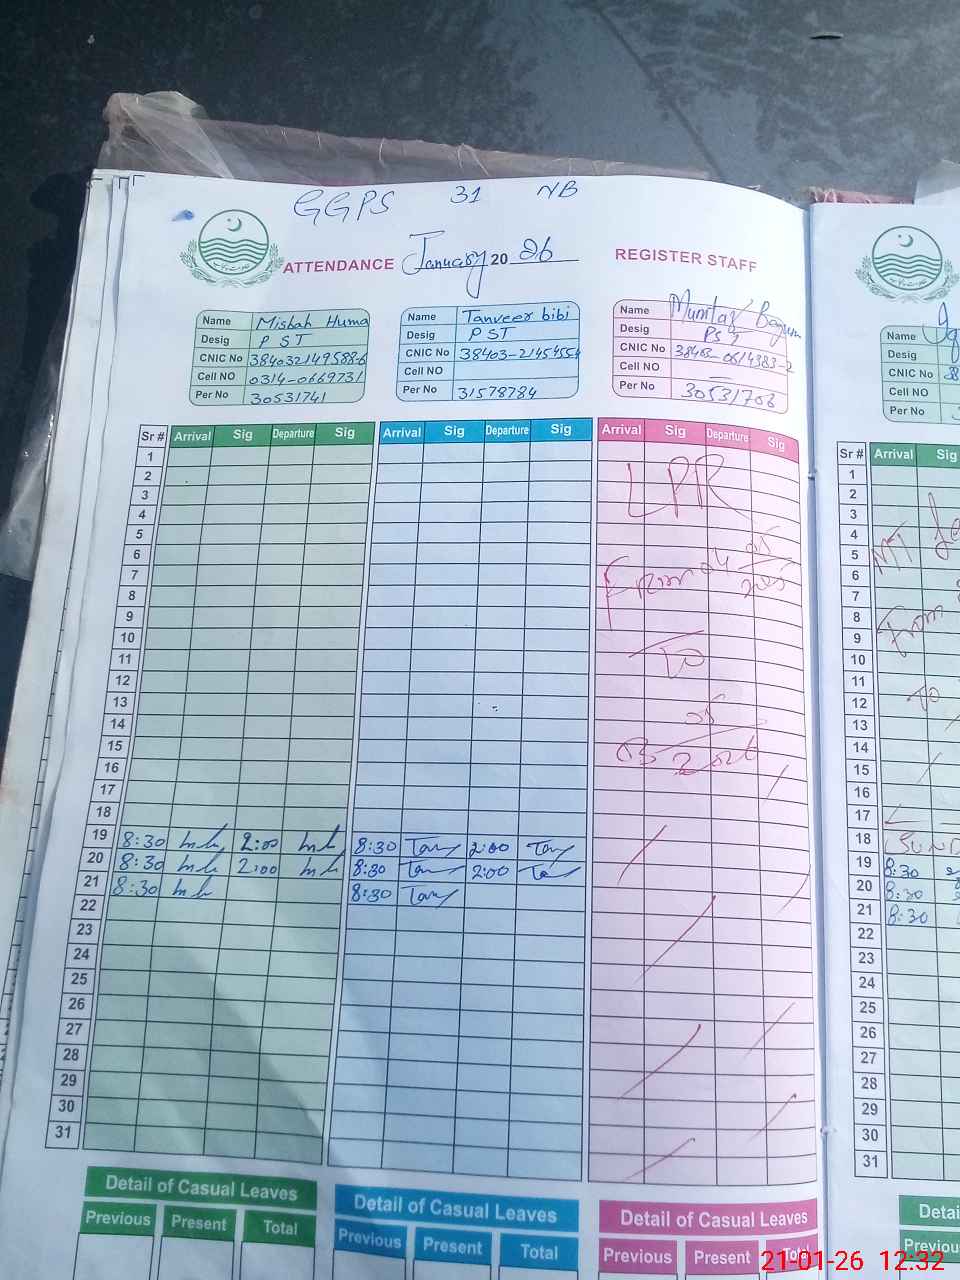 GGPS 31 NB
ATTENDANCE January 20 26 REGISTER STAFF
Name Misbah Huma
Desig P S T
CNIC No 3840321495886
Cell NO 0314-0669731
Per No 30531741
Name Tanveer bibi
Desig P S T
CNIC No 38403-21454554
Cell NO
Per No 31578784
Name Mumtaz Begum
Desig PST
CNIC No 38403-0614383-2
Cell NO —
Per No 30531706
Name
Desig
CNIC No
Cell NO
Per No
Sr # Arrival Sig Departure Sig Arrival Sig Departure Sig Arrival Sig Departure Sig
1
2
3
4
5
6
7
8
9
10
11
12
13
14
15
16
17
18
19 8:30 2:00 8:30 Tan 2:00 Tan
20 8:30 2:00 8:30 Tan 2:00 Ta
21 8:30 8:30 Tan
22
23
24
25
26
27
28
29
30
31
LPR
From 04 05 2025
To
03 05 2026
Sr # Arrival Sig
1
2
3
4
5
6
7
8
9
10
11
12
13
14
15
16
17
18 SUND
19 8:30
20 8:30
21 8:30
22
23
24
25
26
27
28
29
30
31
From
To
Detail of Casual Leaves
Previous Present Total
Detail of Casual Leaves
Previous Present Total
Detail of Casual Leaves
Previous Present Total
Detai
Previous
21-01-26 12:32